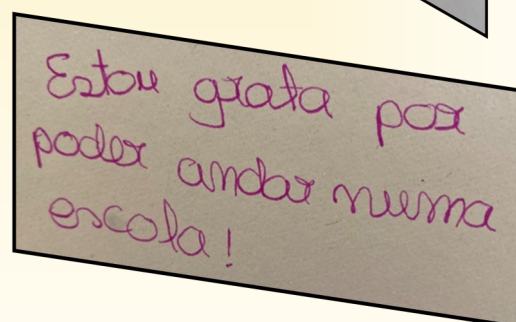 Estou grata por
poder andar numa
escola!